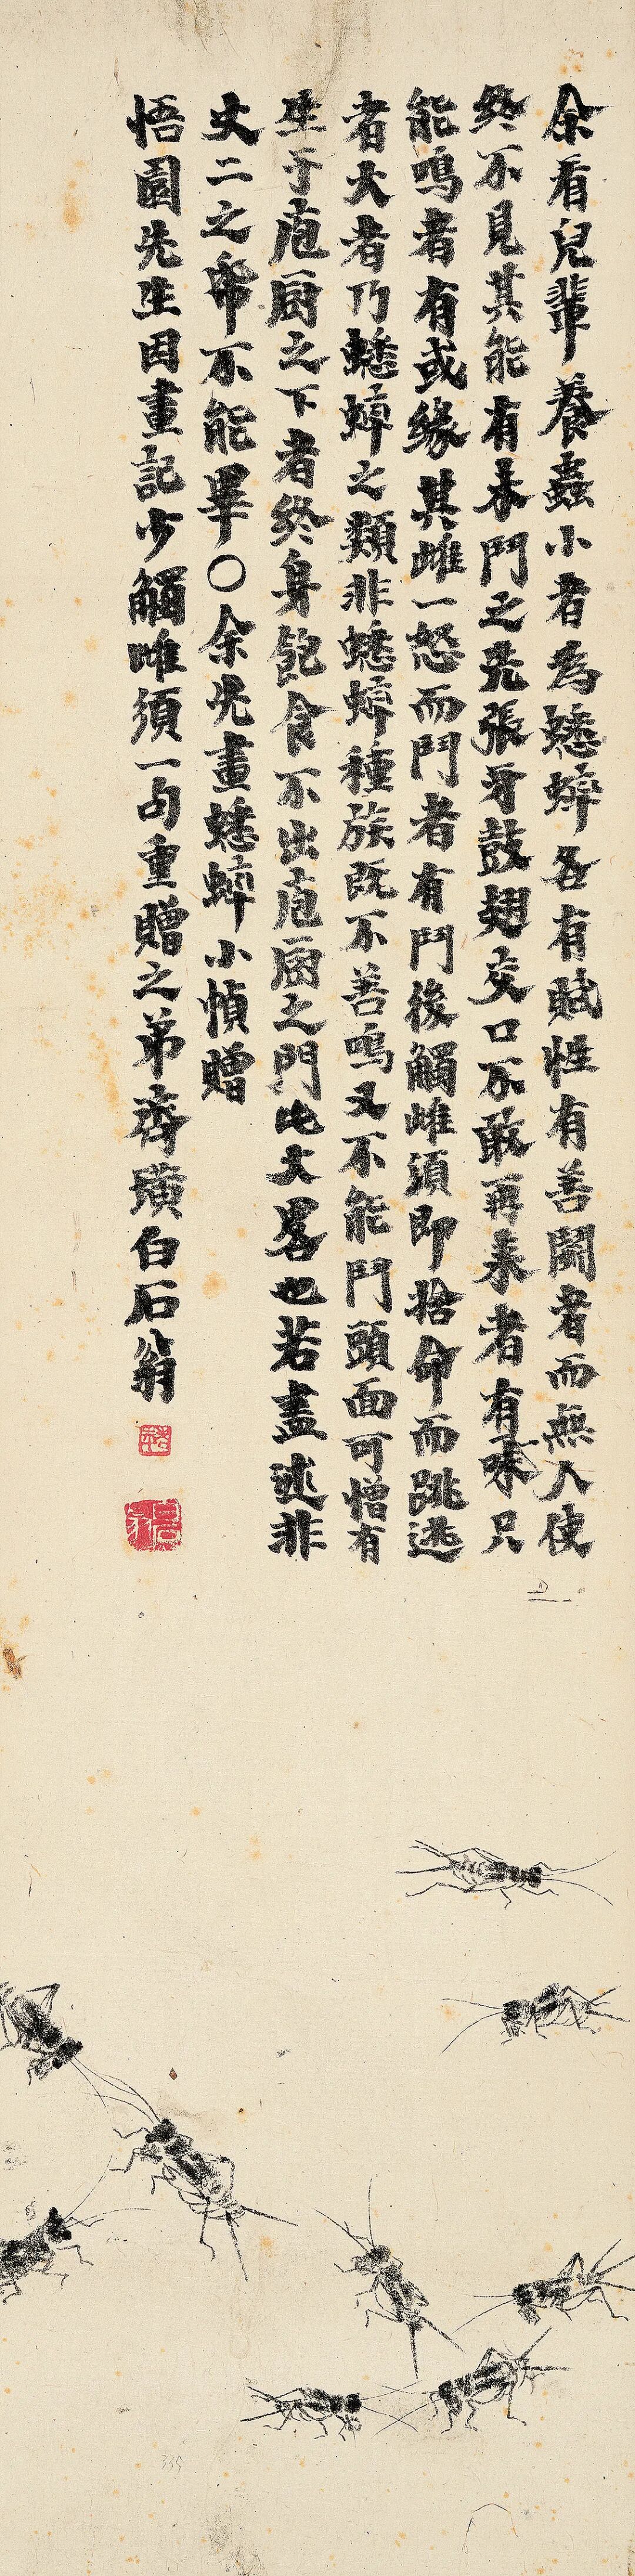 余看兒輩養蟲小者為蟋蟀各有賦性有善鬭者而無人使
終不見其能有未鬥之先張牙鼓翅交口不敢再來者有味只
能鳴者有或緣其雌一怒而鬥者有鬥後觸雌須即捨命而跳逃
者大者乃蟋蟀之類非蟋蟀種族既不善鳴又不能鬥頭面可憎有
生于庖厨之下者終身飽食不出庖厨之門此大畧也若盡述非
丈二之帋不能畢○余先畫蟋蟀小幀贈
悟園先生因畫記少觸雌須一句重贈之弟齊璜白石翁